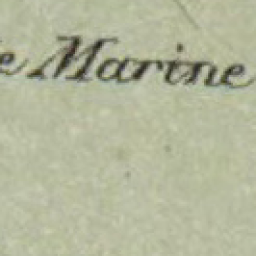 e Marine